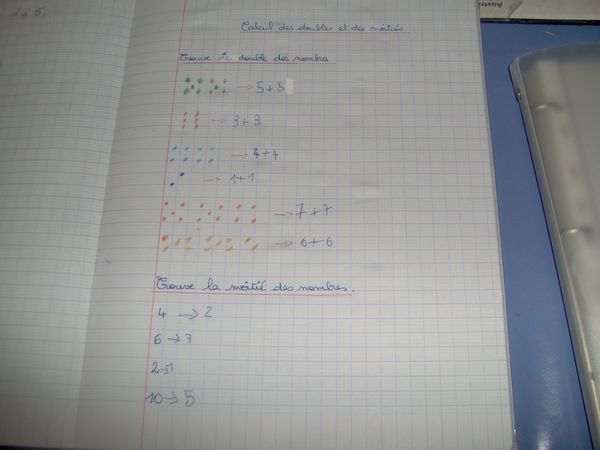 1 à 5.
Austra
Calcul des doubles et des moitiés
Trouve le double des nombres
→ 5+5
→ 3+3
→ 4+4
→ 1+1
→ 7+7
→ 6+6
Trouve la moitié des nombres.
4 → 2
6 → 3
2→1
10→5